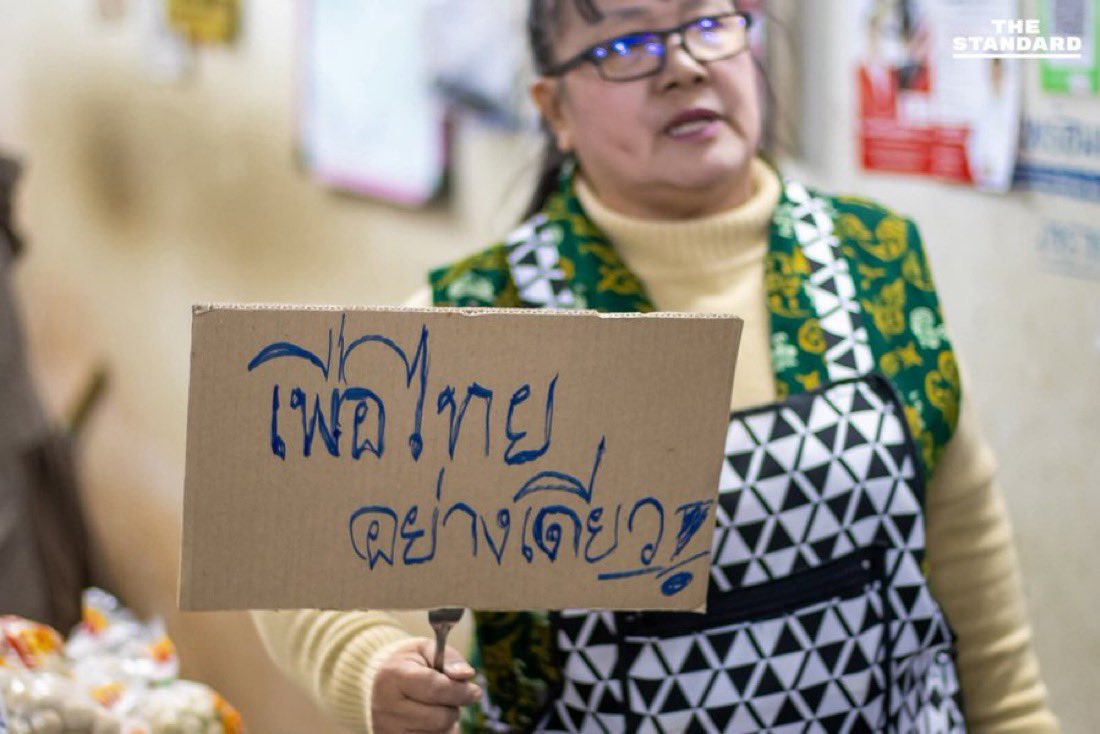 THE
STANDARD
เพื่อไทย
อย่างเดียว!